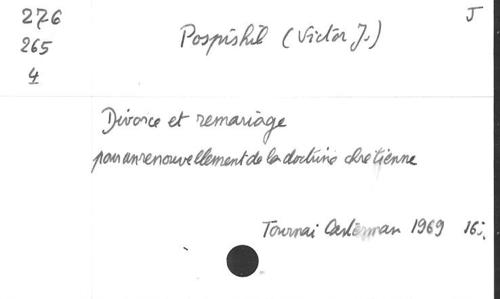 276
265
4
Pospishil (Victor J.)
J
Divorce et remariage
pour un renouvellement de la doctrine chrétienne
Tournai Casterman 1969 16°.